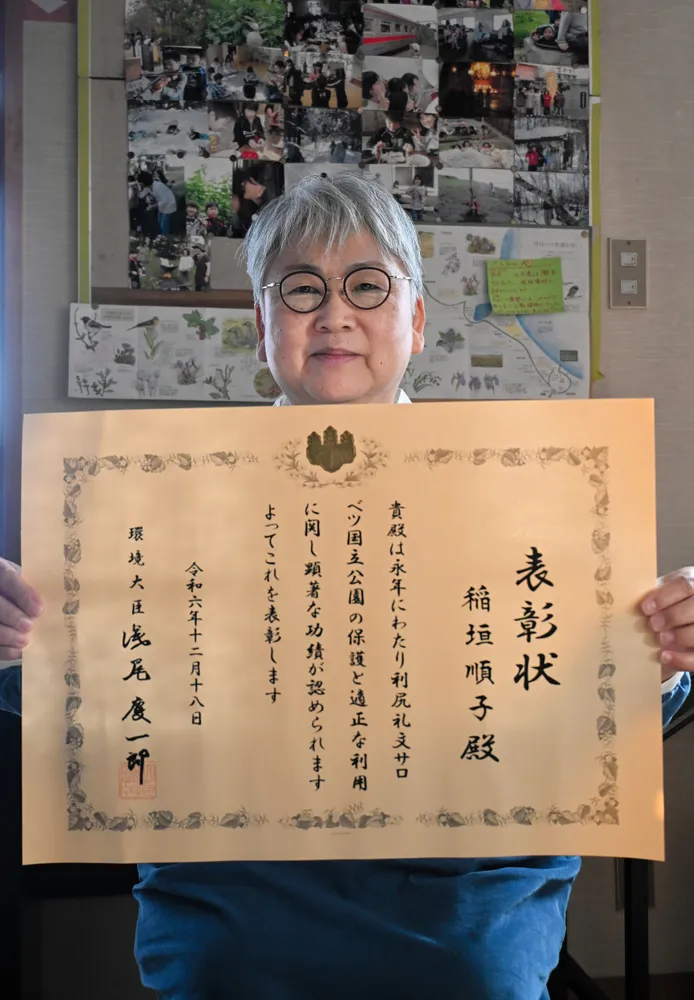 表彰状
稲垣順子殿
貴殿は永年にわたり利尻礼文サロ
ベツ国立公園の保護と適正な利用
に関し顕著な功績が認められます
よってこれを表彰します
令和六年十二月十八日
環境大臣 浅尾慶一郎